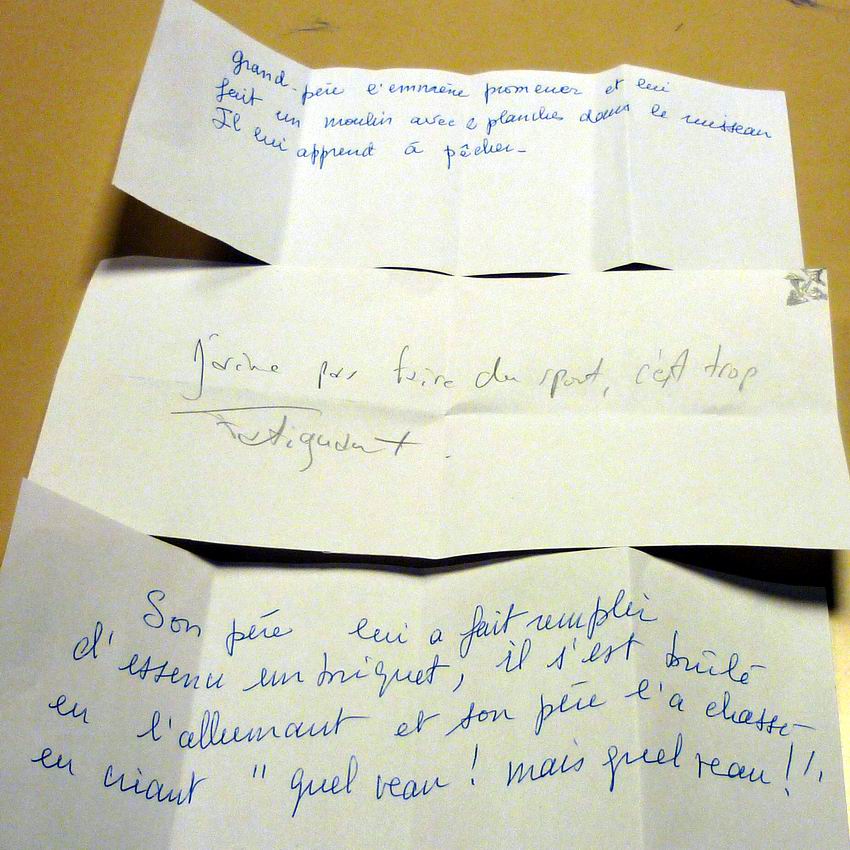 grand-père l'emmène promener et lui
fait un moulin avec 2 planches dans le ruisseau
Il lui apprend à pêcher-
j'aime pas faire du sport, c'est trop
fatiguant.
Son père lui a fait remplir
d'essence un briquet, il s'est brûlé
en l'allumant et son père l'a chassé
en criant " quel veau ! mais quel veau ! "